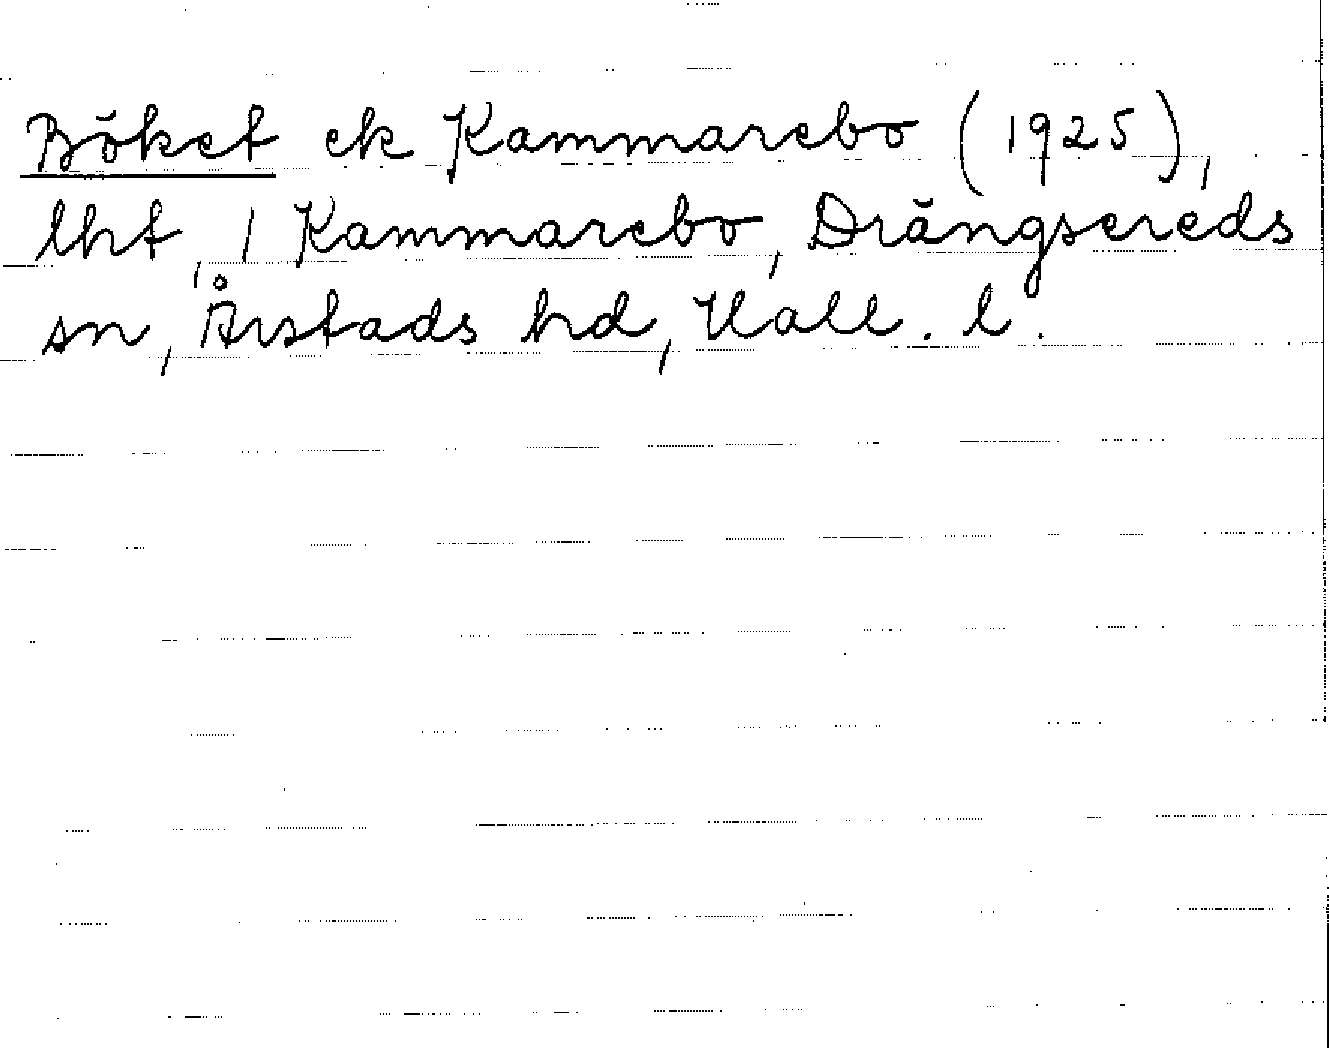 Böket ek Kammarebo (1925),
lht, 1 Kammarebo, Drängsereds
sn, Årstads hd, Hall. l.